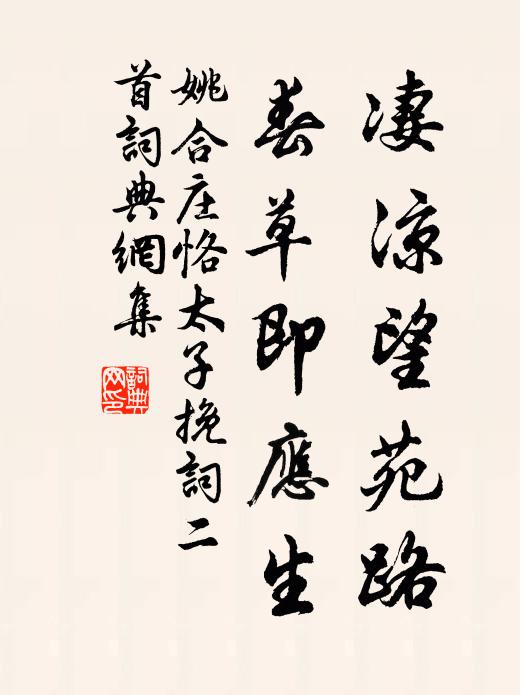 凄涼望苑路
春草即應生
姚合庄恪太子挽詞二
首詞典網集
詞典
网印